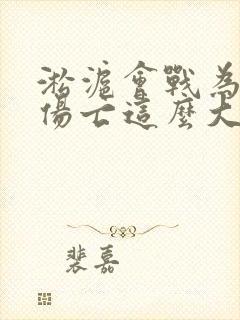 淞滬會戰為
傷亡這麼大
裴嘉